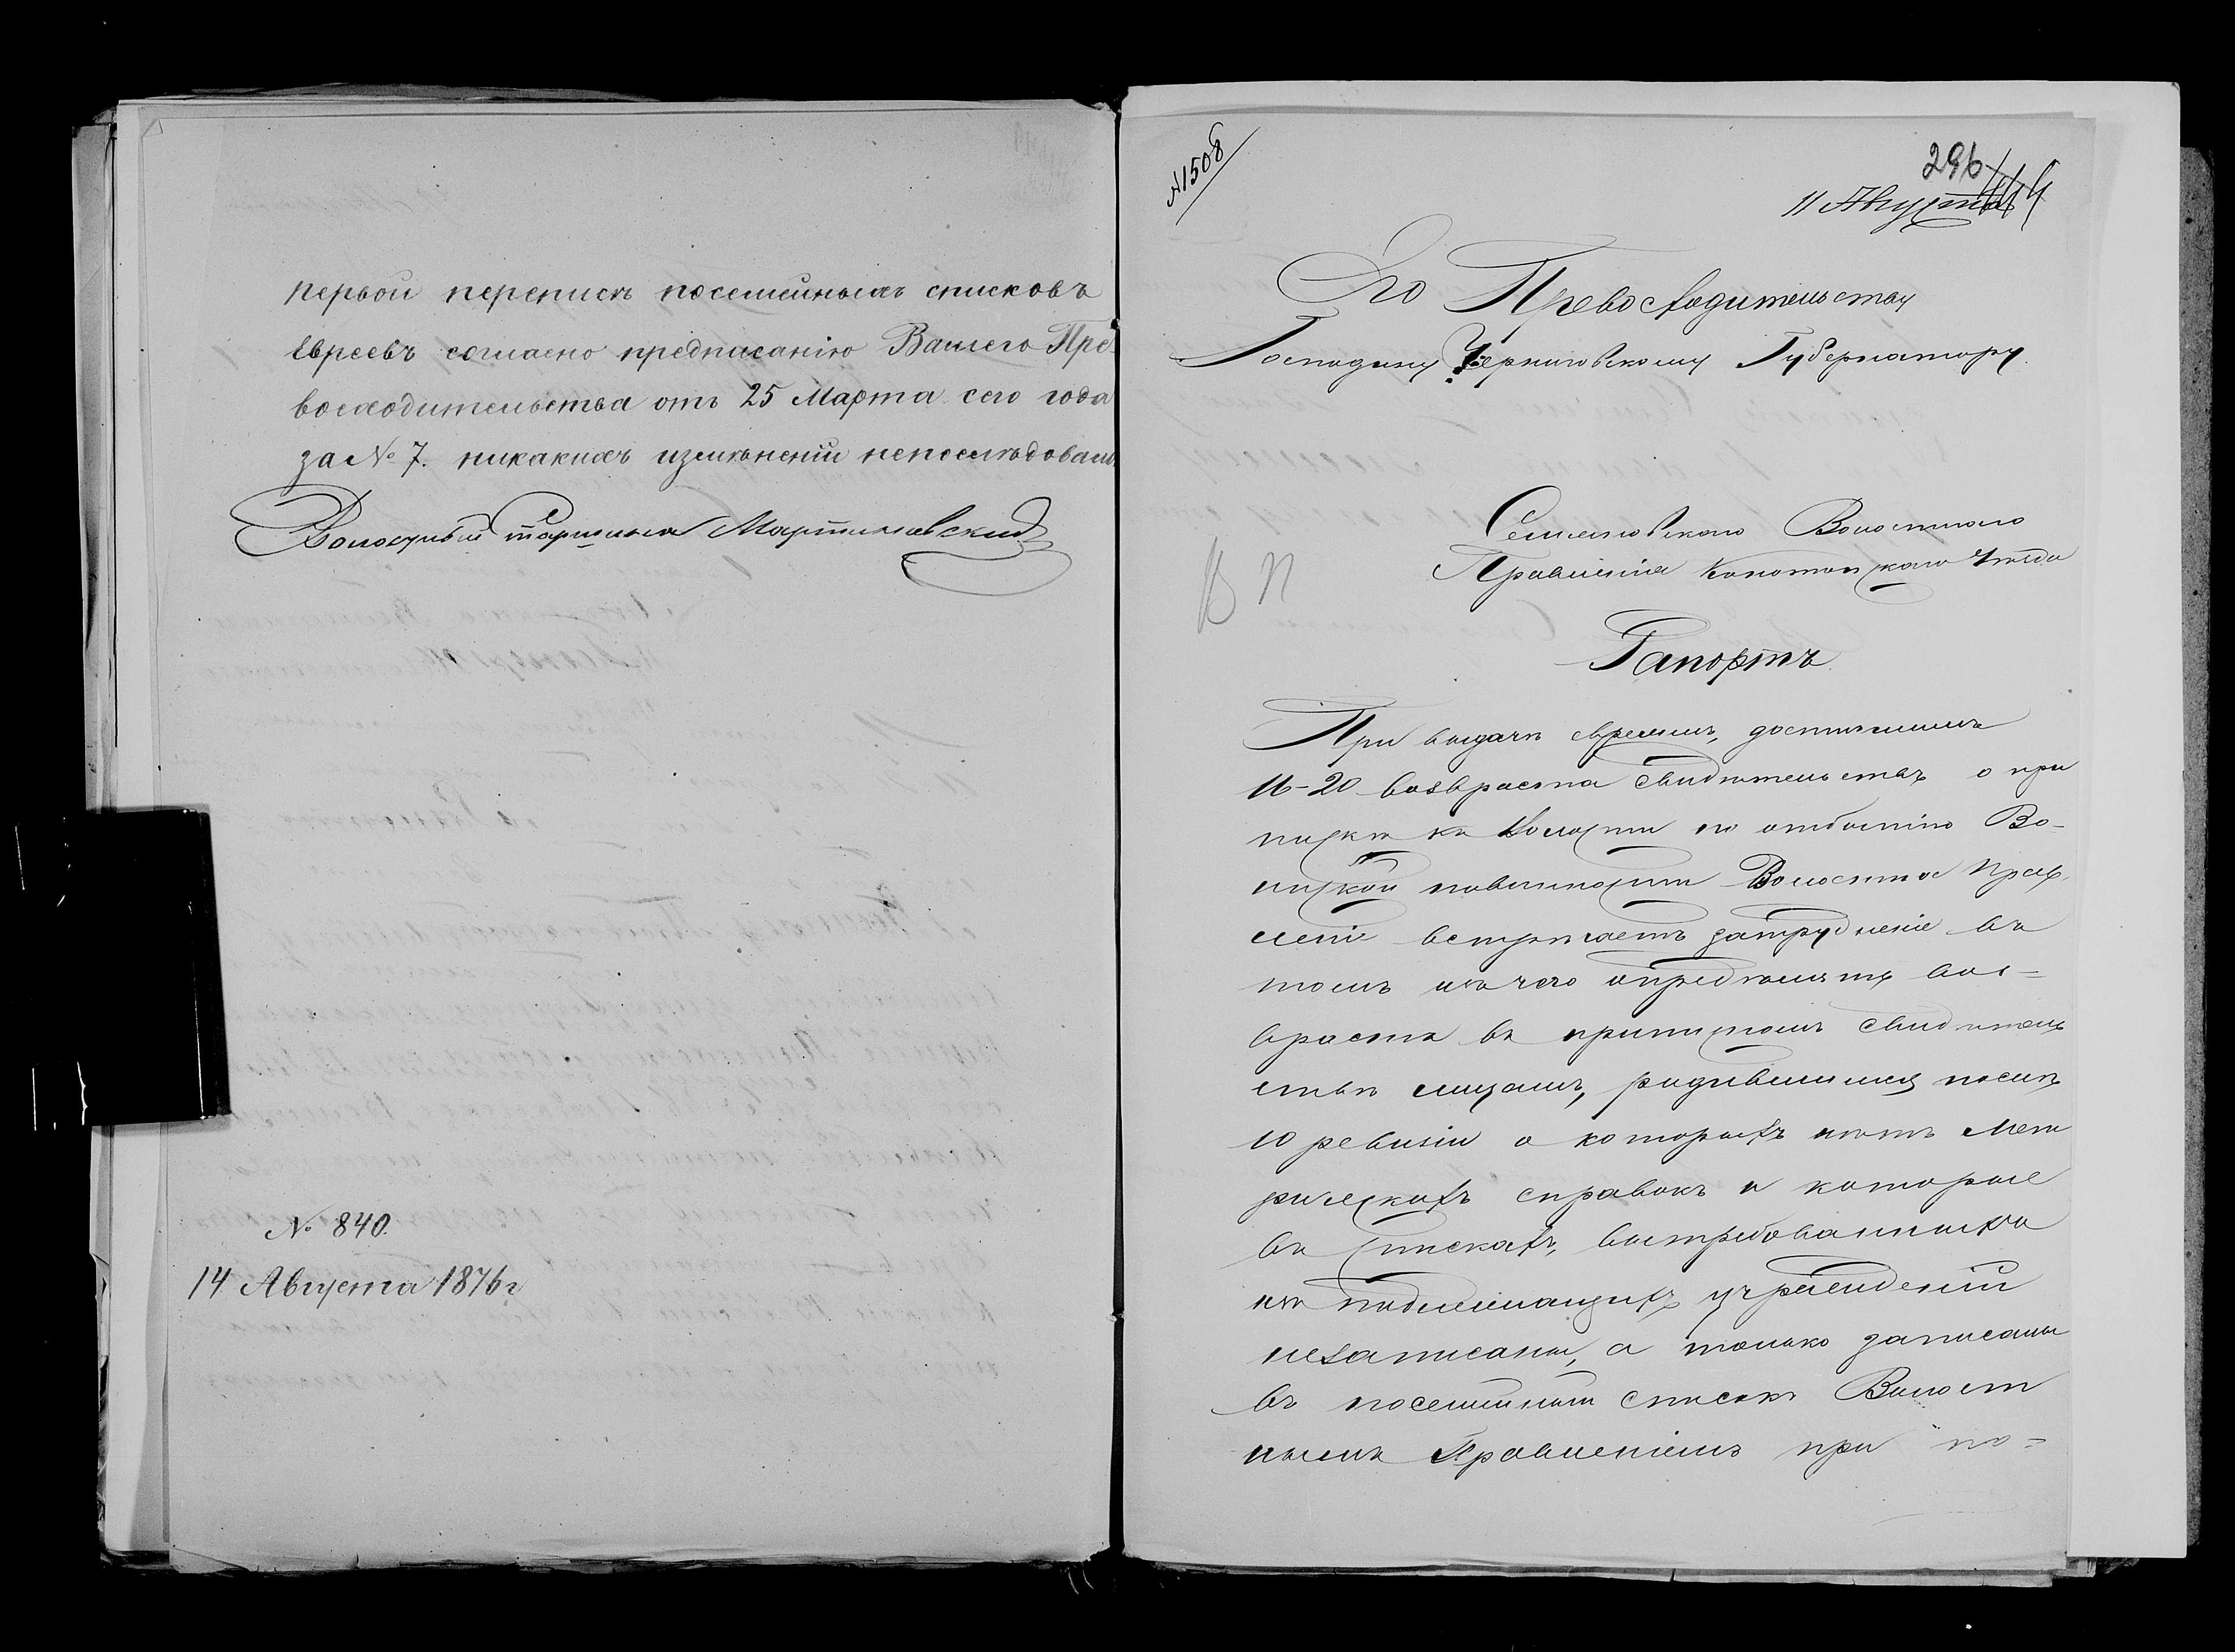 первой переписи посемейныхъ списковъ
евреевъ согласно предписанію Вашего Пре-
восходительства отъ 25 Марта сего года
за № 7. никакихъ измѣненій непослѣдовало.
Волостный Старшина Мартиновский
№ 840.
14 Августа 1876 г
№1508
296
11 Августа
Его Превосходительству
Господину Черниговскому Губернатору.
Семеновского Волостного
Правленія Конотопского Уѣзда
В П
Рапортъ.
При выдачѣ евреямъ, достигшимъ
16-20 возвраста свидѣтельствъ о при
пискѣ къ волости по отбытію Во-
инской повинности Волостное Прав
леніе встрѣчаетъ затрудненіе въ
томъ изъ чего опредѣлить воз-
врастъ въ приписномъ свидѣтель
ствѣ лицамъ, родившимся послѣ
10 ревизіи о которыхъ нѣтъ Мет
рическихъ справокъ и которые
въ спискахъ, вытребованныхъ
изъ подлежащихъ учрежденій
незаписаны, а только записаны
въ посемейный списокъ Волост
нымъ Правленіемъ при по-